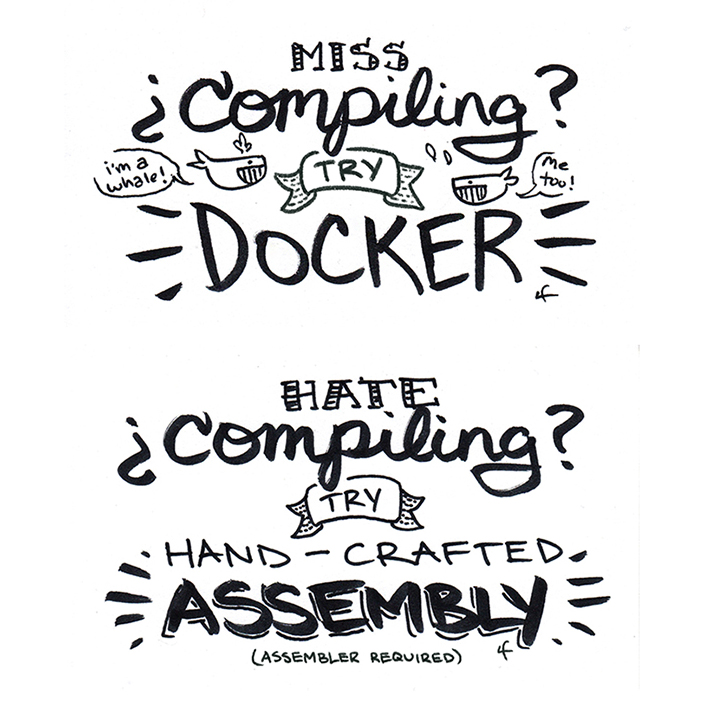 MISS
¿Compiling?
i'm a
whale!
TRY
me
too!
DOCKER
HATE
¿Compiling?
TRY
HAND-CRAFTED
ASSEMBLY
(ASSEMBLER REQUIRED)